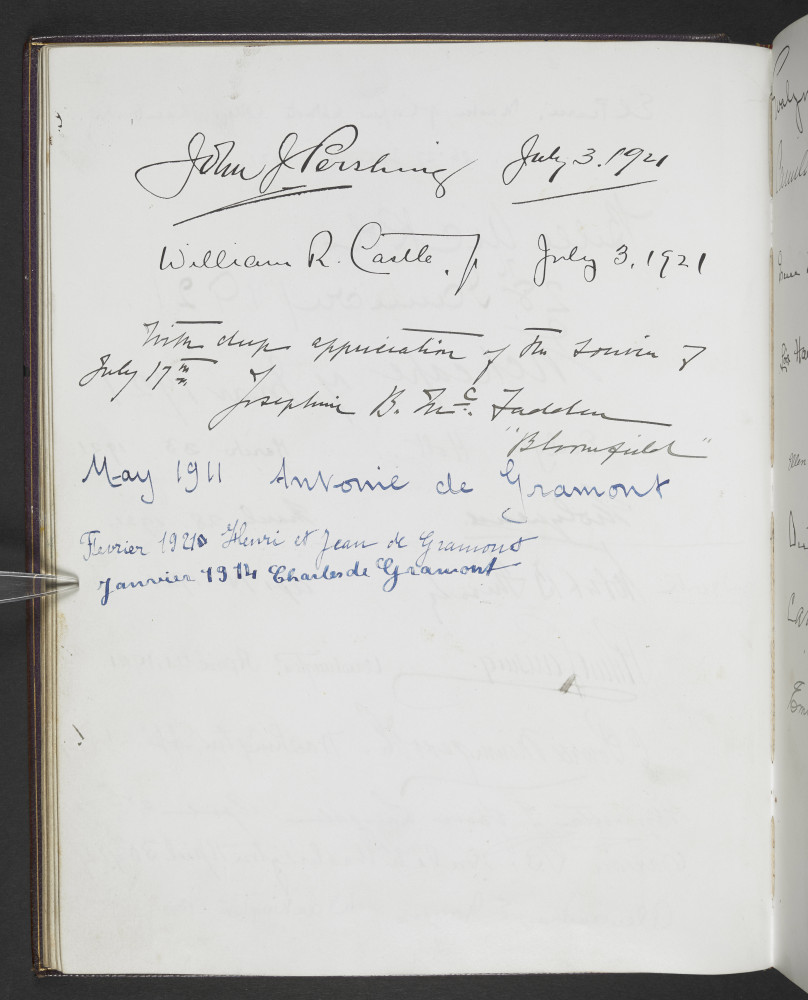 John J. Pershing July 3. 1921
William R. Castle. Jr July 3, 1921
With deep appreciation of the
July 17th
Josephine B. McFadden
"Bloomfield"
May 1911 Antoine de Gramont
Fevrier 1921 Henri et Jean de Gramont
Janvier 1914 Charles de Gramont